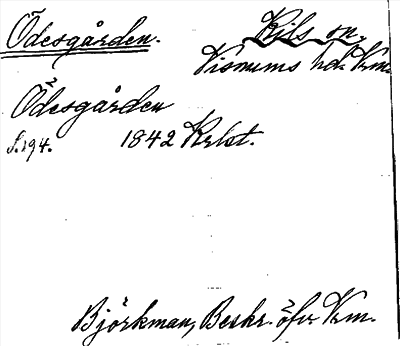 Ödesgården.
Kils sn.
Visnums hd. Vrm.
Ödesgården
s. 194. 1842 Krlst.
Björkman, Beskr. öfv. Vrm.